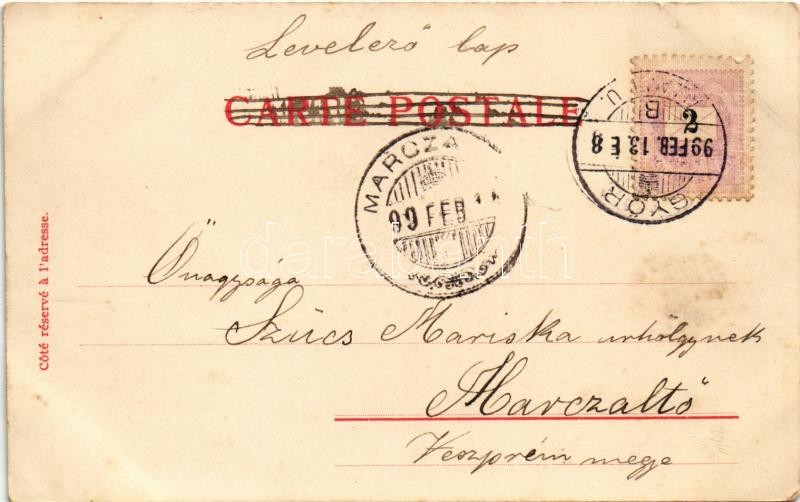 Levelező lap
CARTE POSTALE
2
GYŐR
99 FEB. 13. E 8
B
U.
MARCZA
99 FEB
Côté réservé à l'adresse.
Őnagysága
Szűcs Mariska urhölgynek
Marczaltő
Veszprém mege